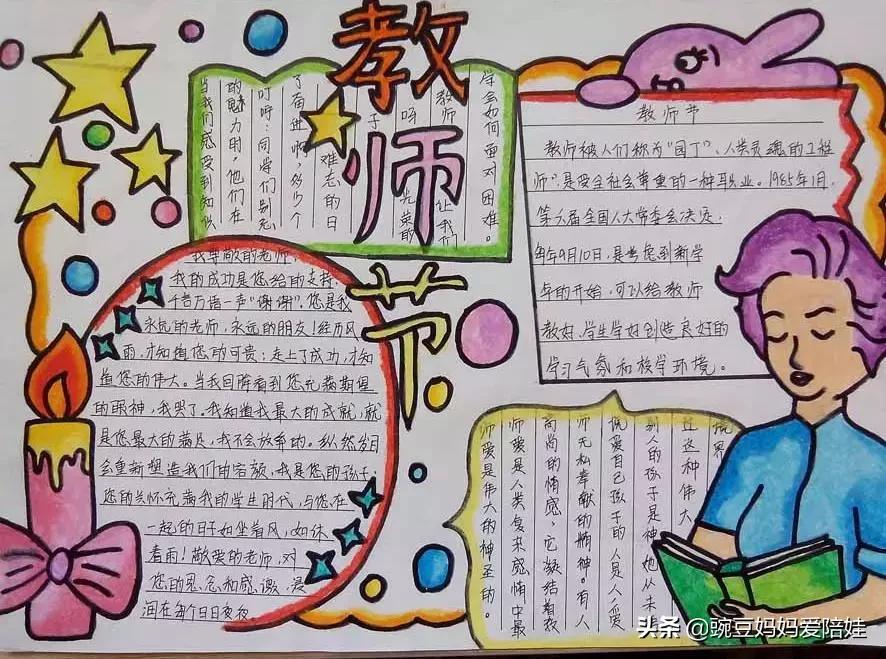 教师节
学会如何面对困难。
教师
让我们
呀
光荣的
子
难忘的日
了奋进啊,多少个
叮咛:同学们别忘
的魅力时,他们在
当我们感受到知识
教师节
教师被人们称为“园丁”、人类灵魂的工程
师”,是受全社会尊重的一种职业。1985年1月,
第六届全国人大常委会决定,
每年9月10日,是考虑到新学
年的开始,可以给教师
教好、学生学好创造良好的
学习气氛和校学环境。
我尊敬的老师
我的成功是您给的支持,
千言万语一声“谢谢”。您是我
永远的老师,永远的朋友!经历风
雨,才知道您的可贵;走上了成功,才知
道您的伟大。当我回眸看到您充满期望
的眼神,我哭了。我知道我最大的成就,就
是您最大的满足,我不会放弃的。纵然岁月
会重新塑造我们的容颜,我是您的孩子;
您的关怀充满我的学生时代,与您在
一起的日子如坐春风,如沐
春雨!敬爱的老师,对
您的思念和感激,浸
润在每个日日夜夜
师爱是伟大的神圣的。
师爱是人类复杂感情中最
高尚的情感,它凝结着教
师无私奉献的精神。有人
说爱自己孩子的人是人,爱
别人的孩子是神,她从未
过这种伟大
境界
头条 @豌豆妈妈爱陪娃